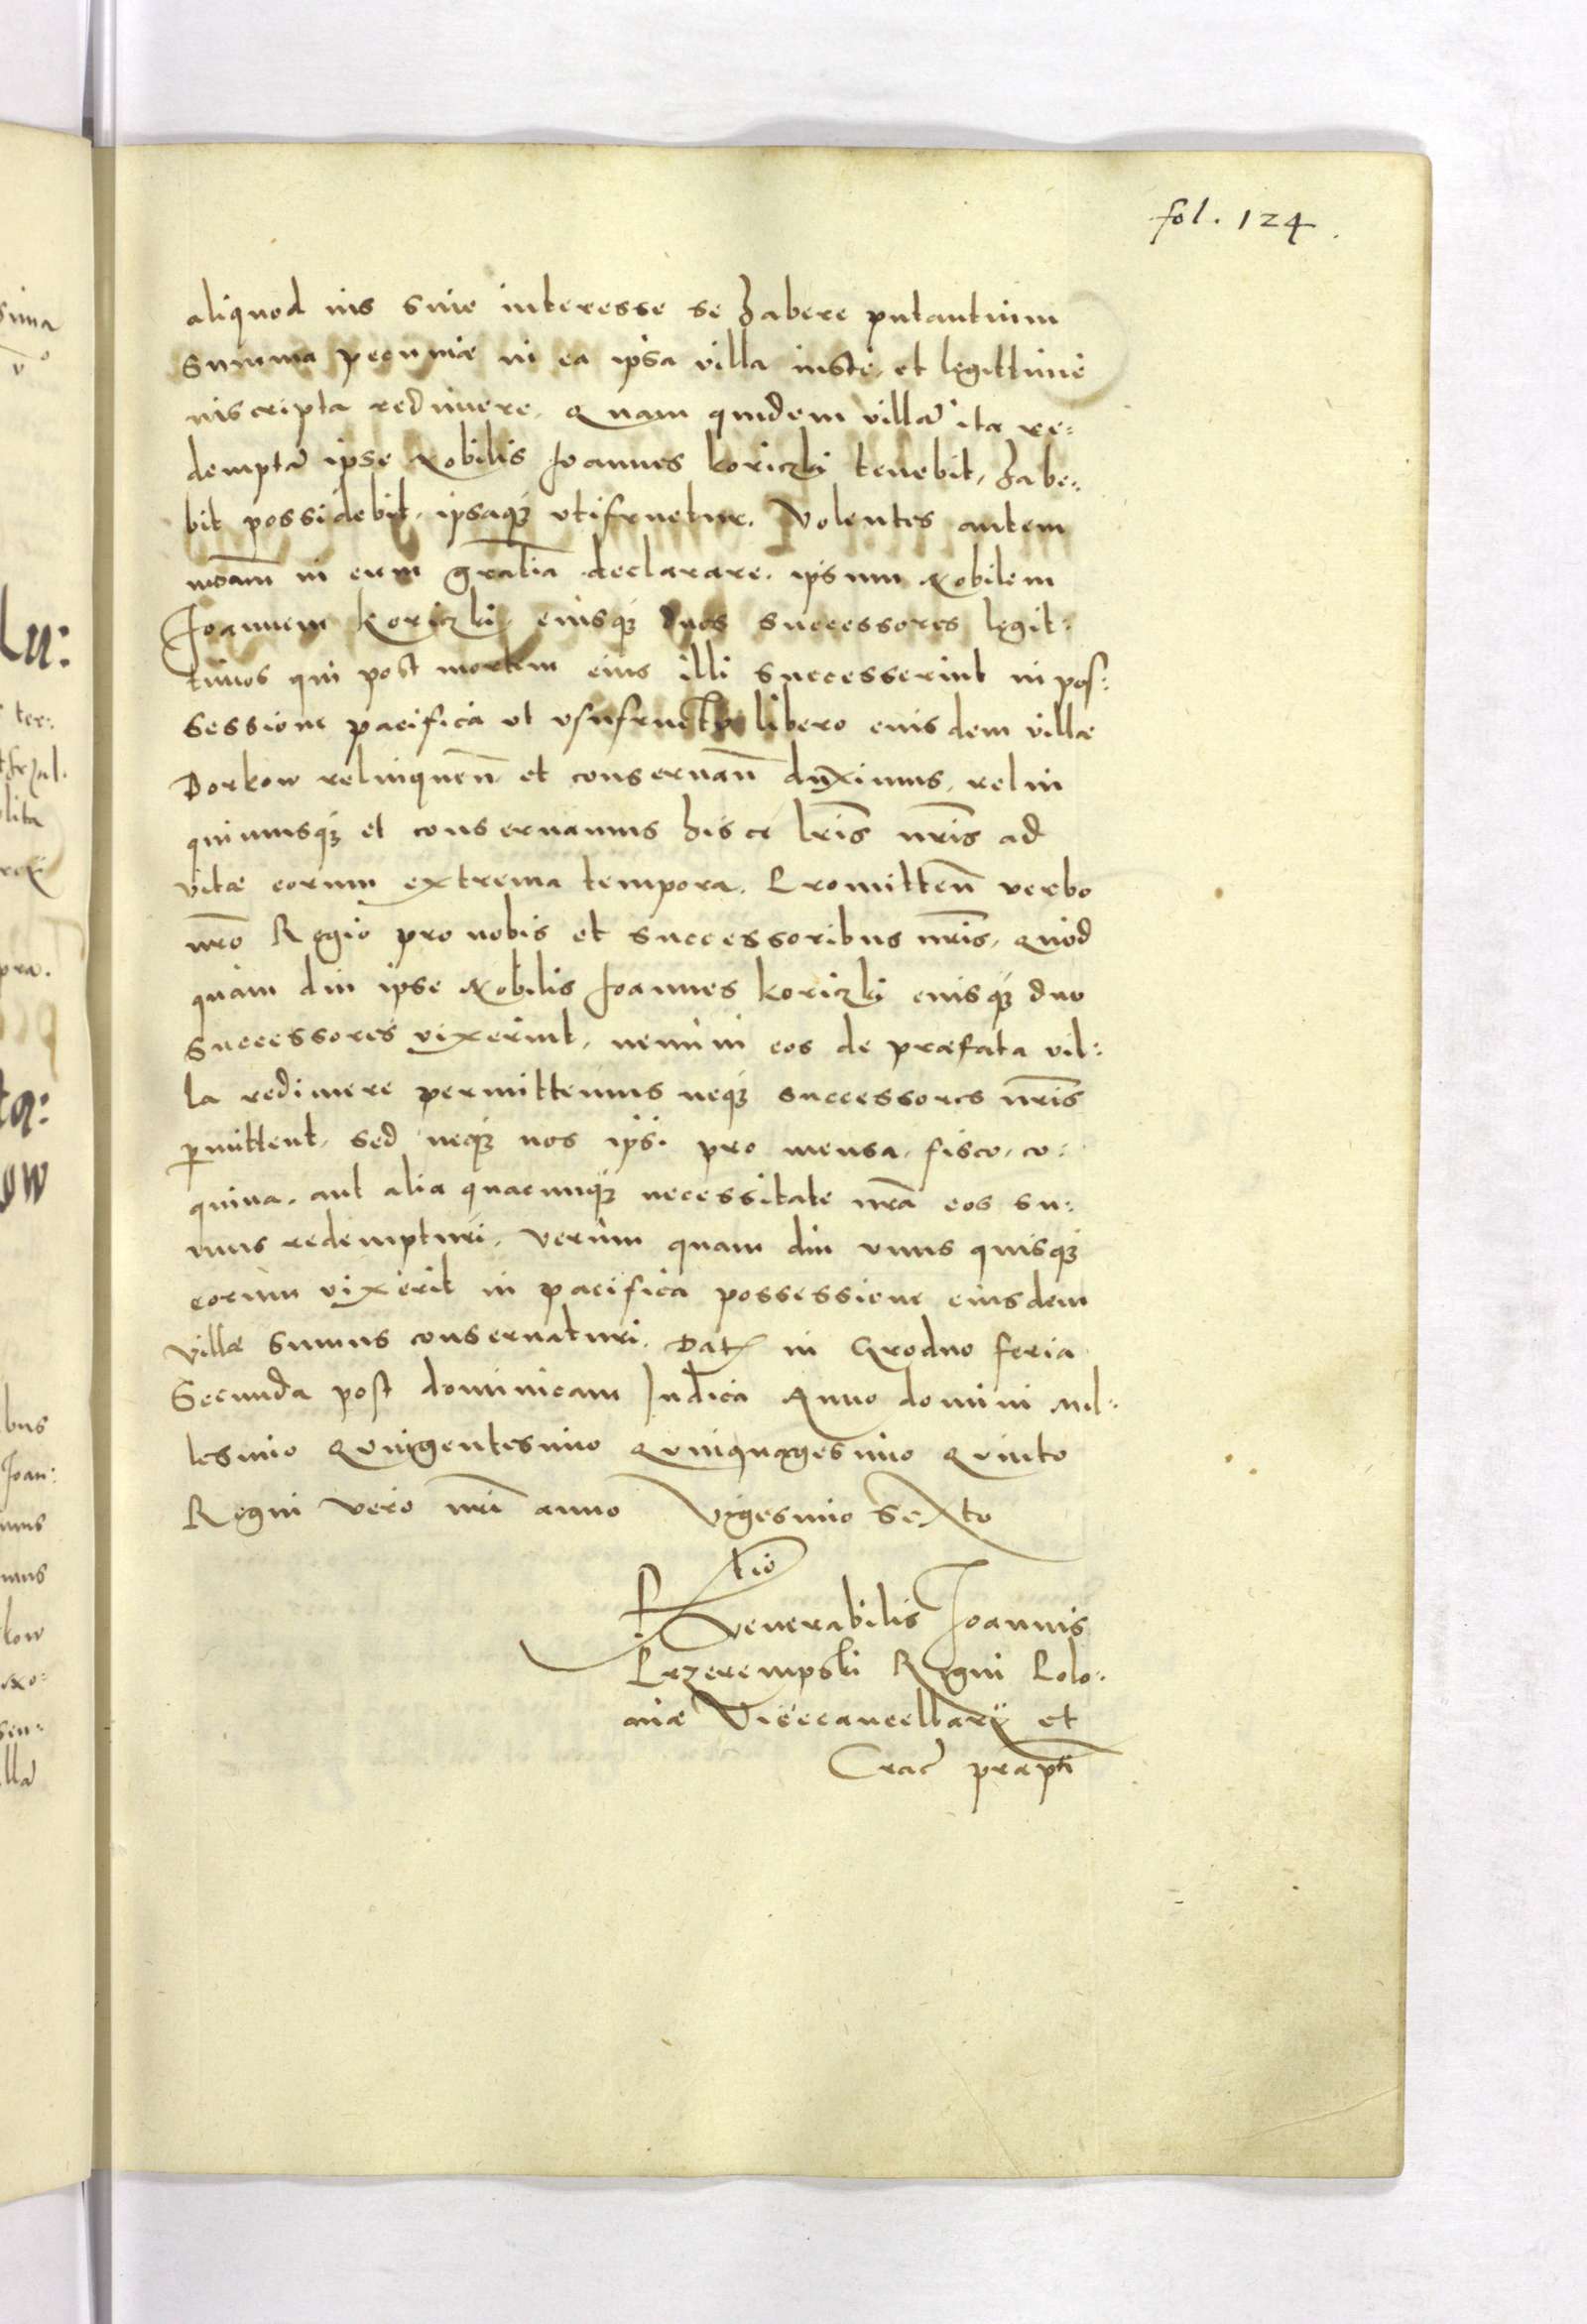 fol. 124.
aliquod ius siue interesse se habere putantium
summa pecuniæ in ea ipsa villa iuste, et legittime
inscripta redimere. Quam quidem villã ita re:
demptã ipse Nobilis Joannes Koriczki tenebit, habe:
bit possidebit, ipsaq; vtifruetur. Volentes autem
in eum gratia declarare, ipsum Nobilem
Joannem Koriczki, eiusq; duos successores legit:
timos qui post mortem eius illi successerint in pos:
sessione pacifica et vsufructu libero eiusdem villæ
Dorkow relinquen̄ et conseruan̄ duximus, relin
quimusq; et conseruamus hisce l̃ris nr̃is ad
vitæ eorum extrema tempora. Promitten̄ verbo
nr̃o Regio pro nobis et successoribus nr̃is, quod
quam diu ipse Nobilis Joannes Koriczki eiusq; duo
successores vixerint, nemini eos de præfata vil:
la redimere permittemus neq; successores nr̃is
p̱mittent, sed neq; nos ipsi pro mensa, fisco, co:
quina, aut alia quacunq; necessitate nr̃a eos su:
mus redempturi, verùm quam diu vnus quisq;
eorum vixerit in pacifica possessione eiusdem
villæ sumus conseruaturi. Dat; in Grodno feria
Secunda post dominicam Judica Anno domini mil:
lesimo Quingentesimo Quinquagesimo Quinto
Regni vero nr̃i anno Vigesimo Sexto
R̃tio
Venerabilis Joannis
Przerempski Regni Polo:
niæ Vicecancellarij et
Crac̃ præpti